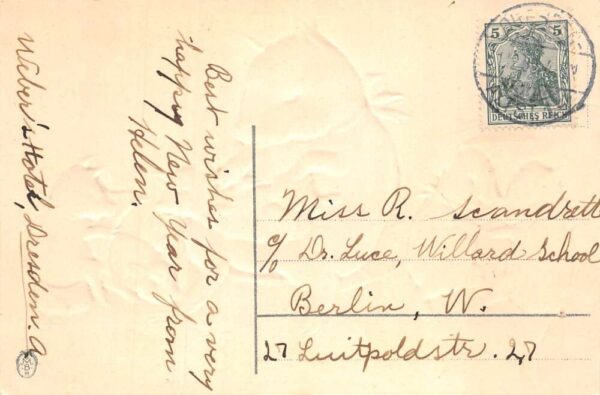 Best wishes for a very
happy New Year from
Helen.
Weber's Hotel, Dresden. A
5 5
DEUTSCHES REICH
Miss R. Scandrett
c/o Dr. Luce, Willard School
Berlin, W.
27 Luitpoldstr. 27